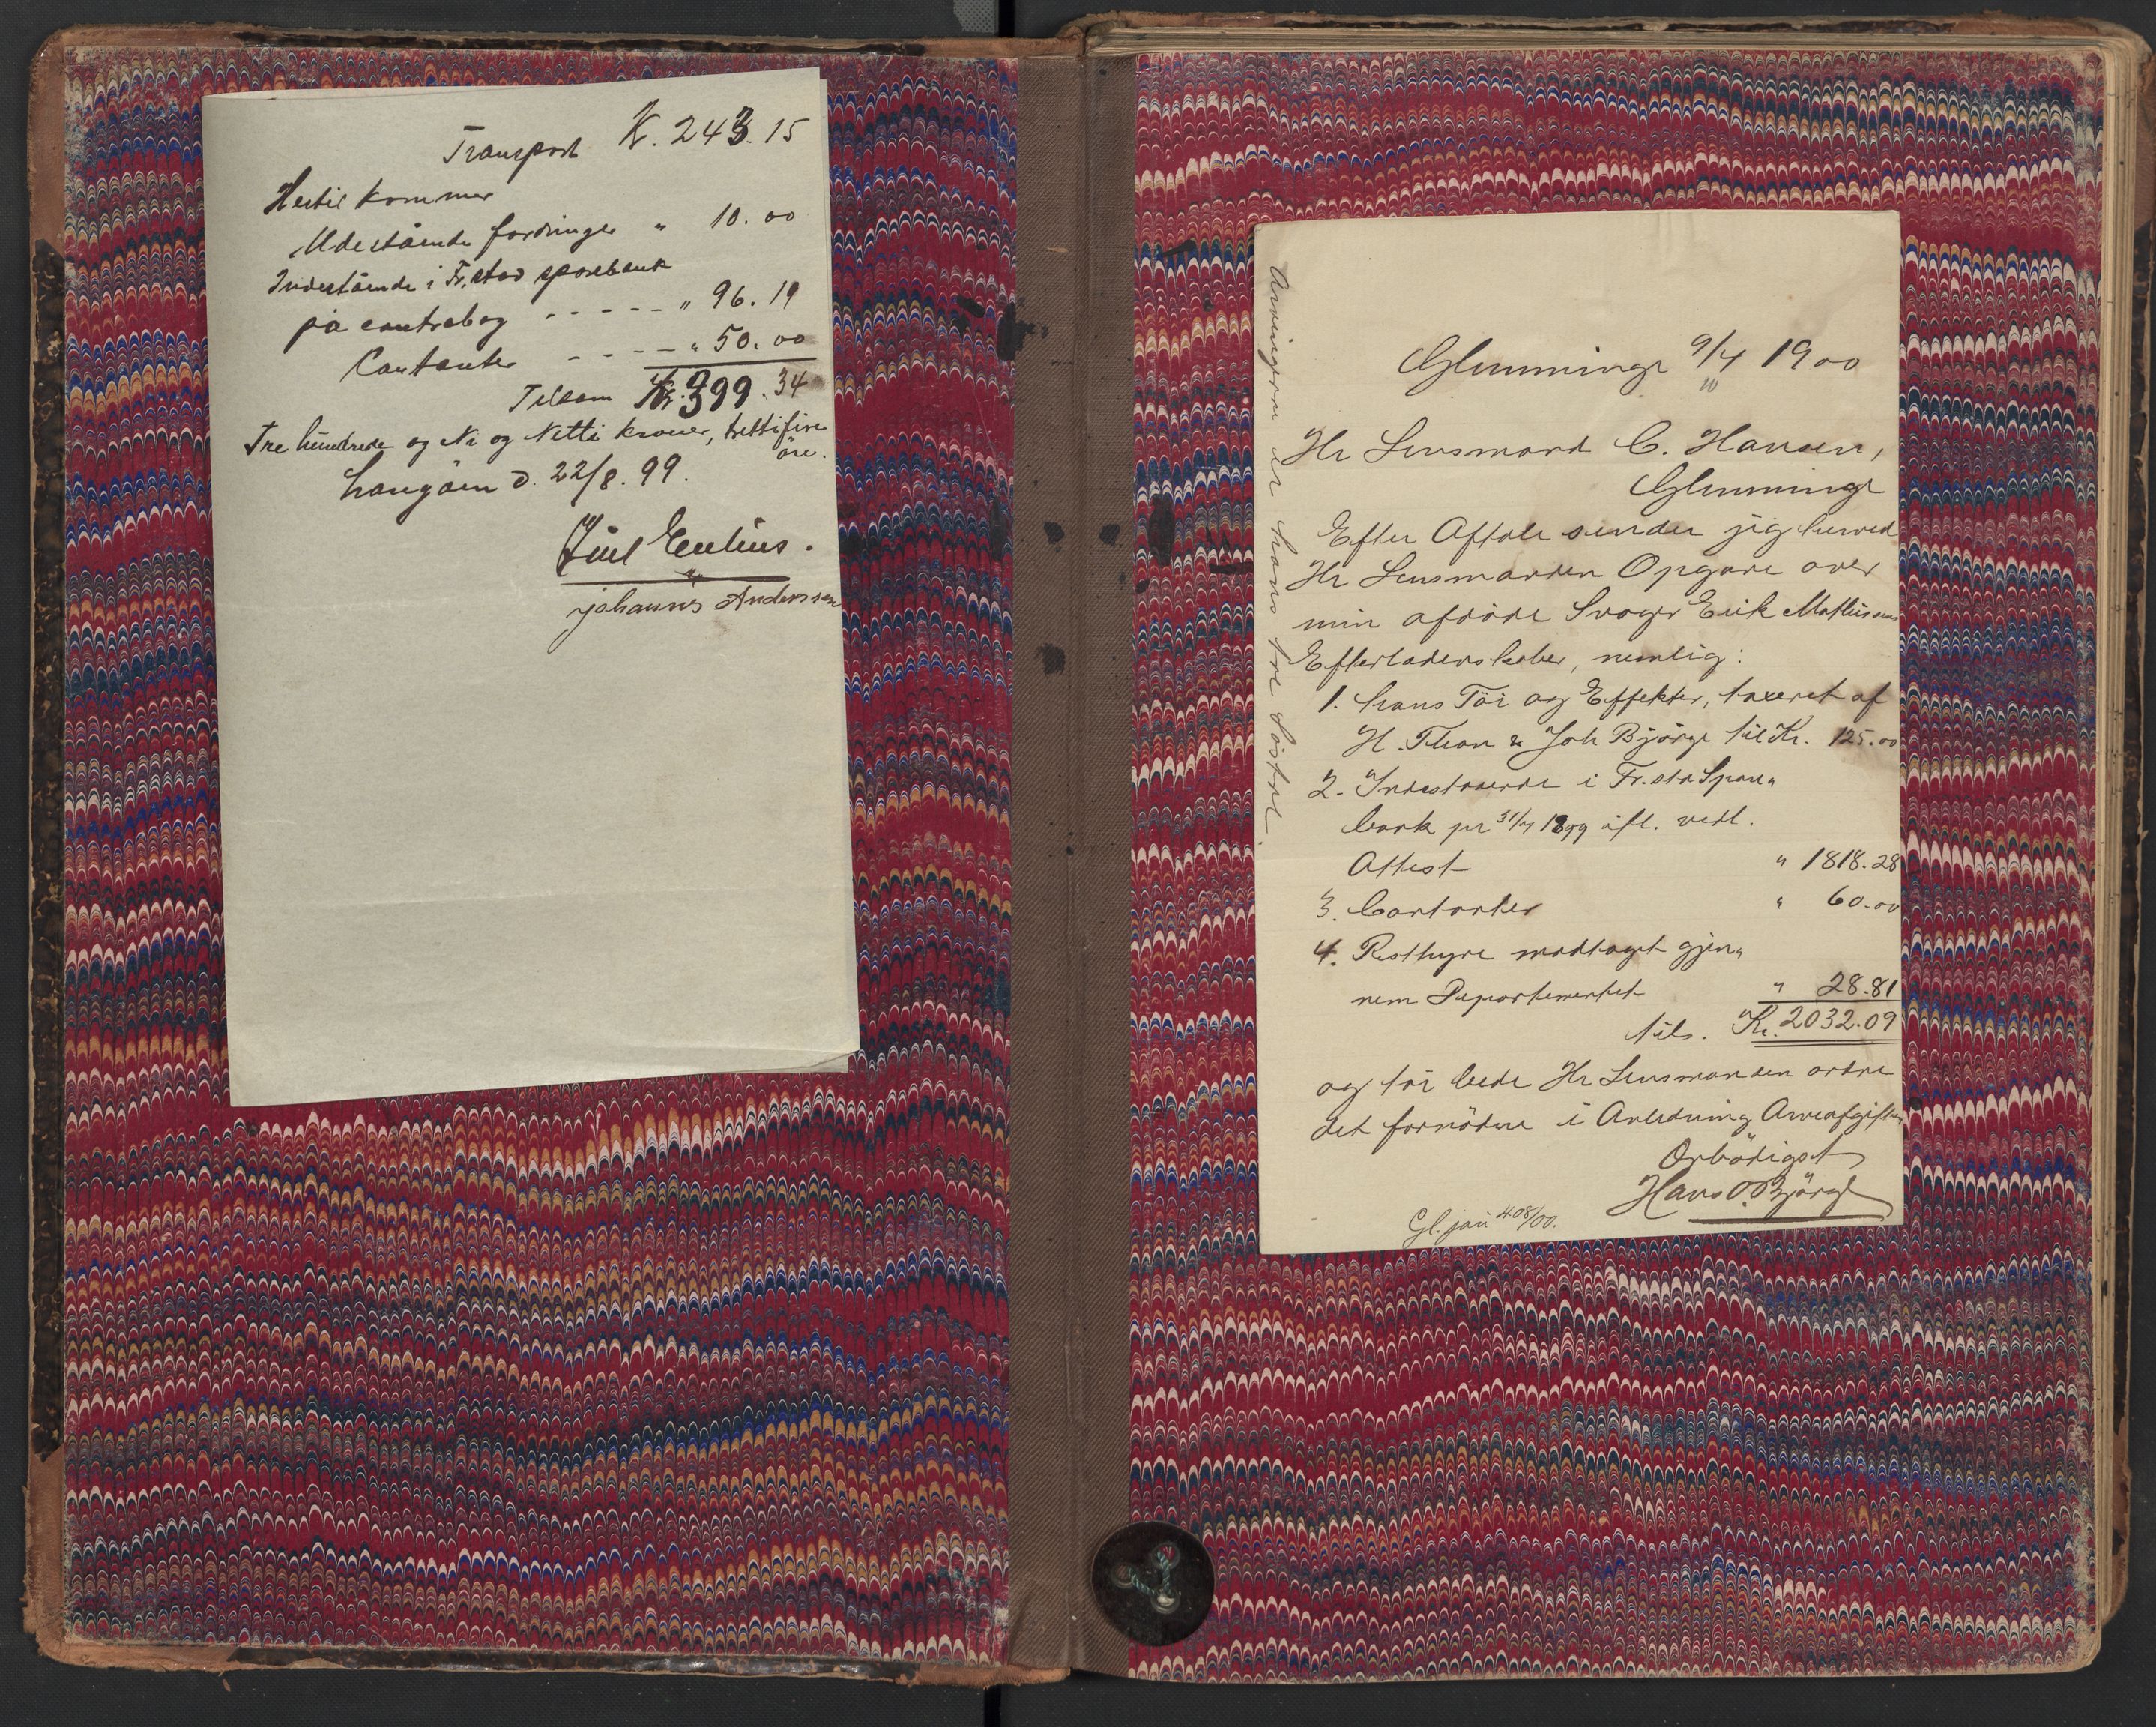 Transport K. 243.15
Hertil kommer
Udestående fordringer " 10.00
Indestående i Fr.stad sparebank
på contrabog - - - - - " 96.19
Contanter - - - - " 50.00
Tilsam Kr. 399.34
Tre hundrede og Ni og Nitti kroner, trettifire
öre.
Langöen d. 22/8. 99.
Juel Eulius.
Johannes Anderssen
Glemminge 9/4 1900
Hr Lensmand C. Hansen,
Glemminge
Efter Aftale sender jeg herved
Hr Lensmanden Opgave over
min afdöde Svoger Erik Mathisens
Efterladenskaber, nemlig:
1. hans Töi og Effekter, taxeret af
H. Thon & Joh Björge til Kr. 125.00
2. Indestaaende i Fr.sta Spare"
bank pr 31/12 1899 ifl. vedl.
Attest " 1818.28
3. Contanter " 60.00
4. Resthyre modtaget gjen"
nem Departementet " 28.81
tils. Kr. 2032.09
og tör bede Hr Lensmanden ordne
det fornödne i Anledning Arveafgiften
Ærbödigst
Hans O. Björge
Gl. jou 408/00.
Arvingerne er hans tre Söstre.